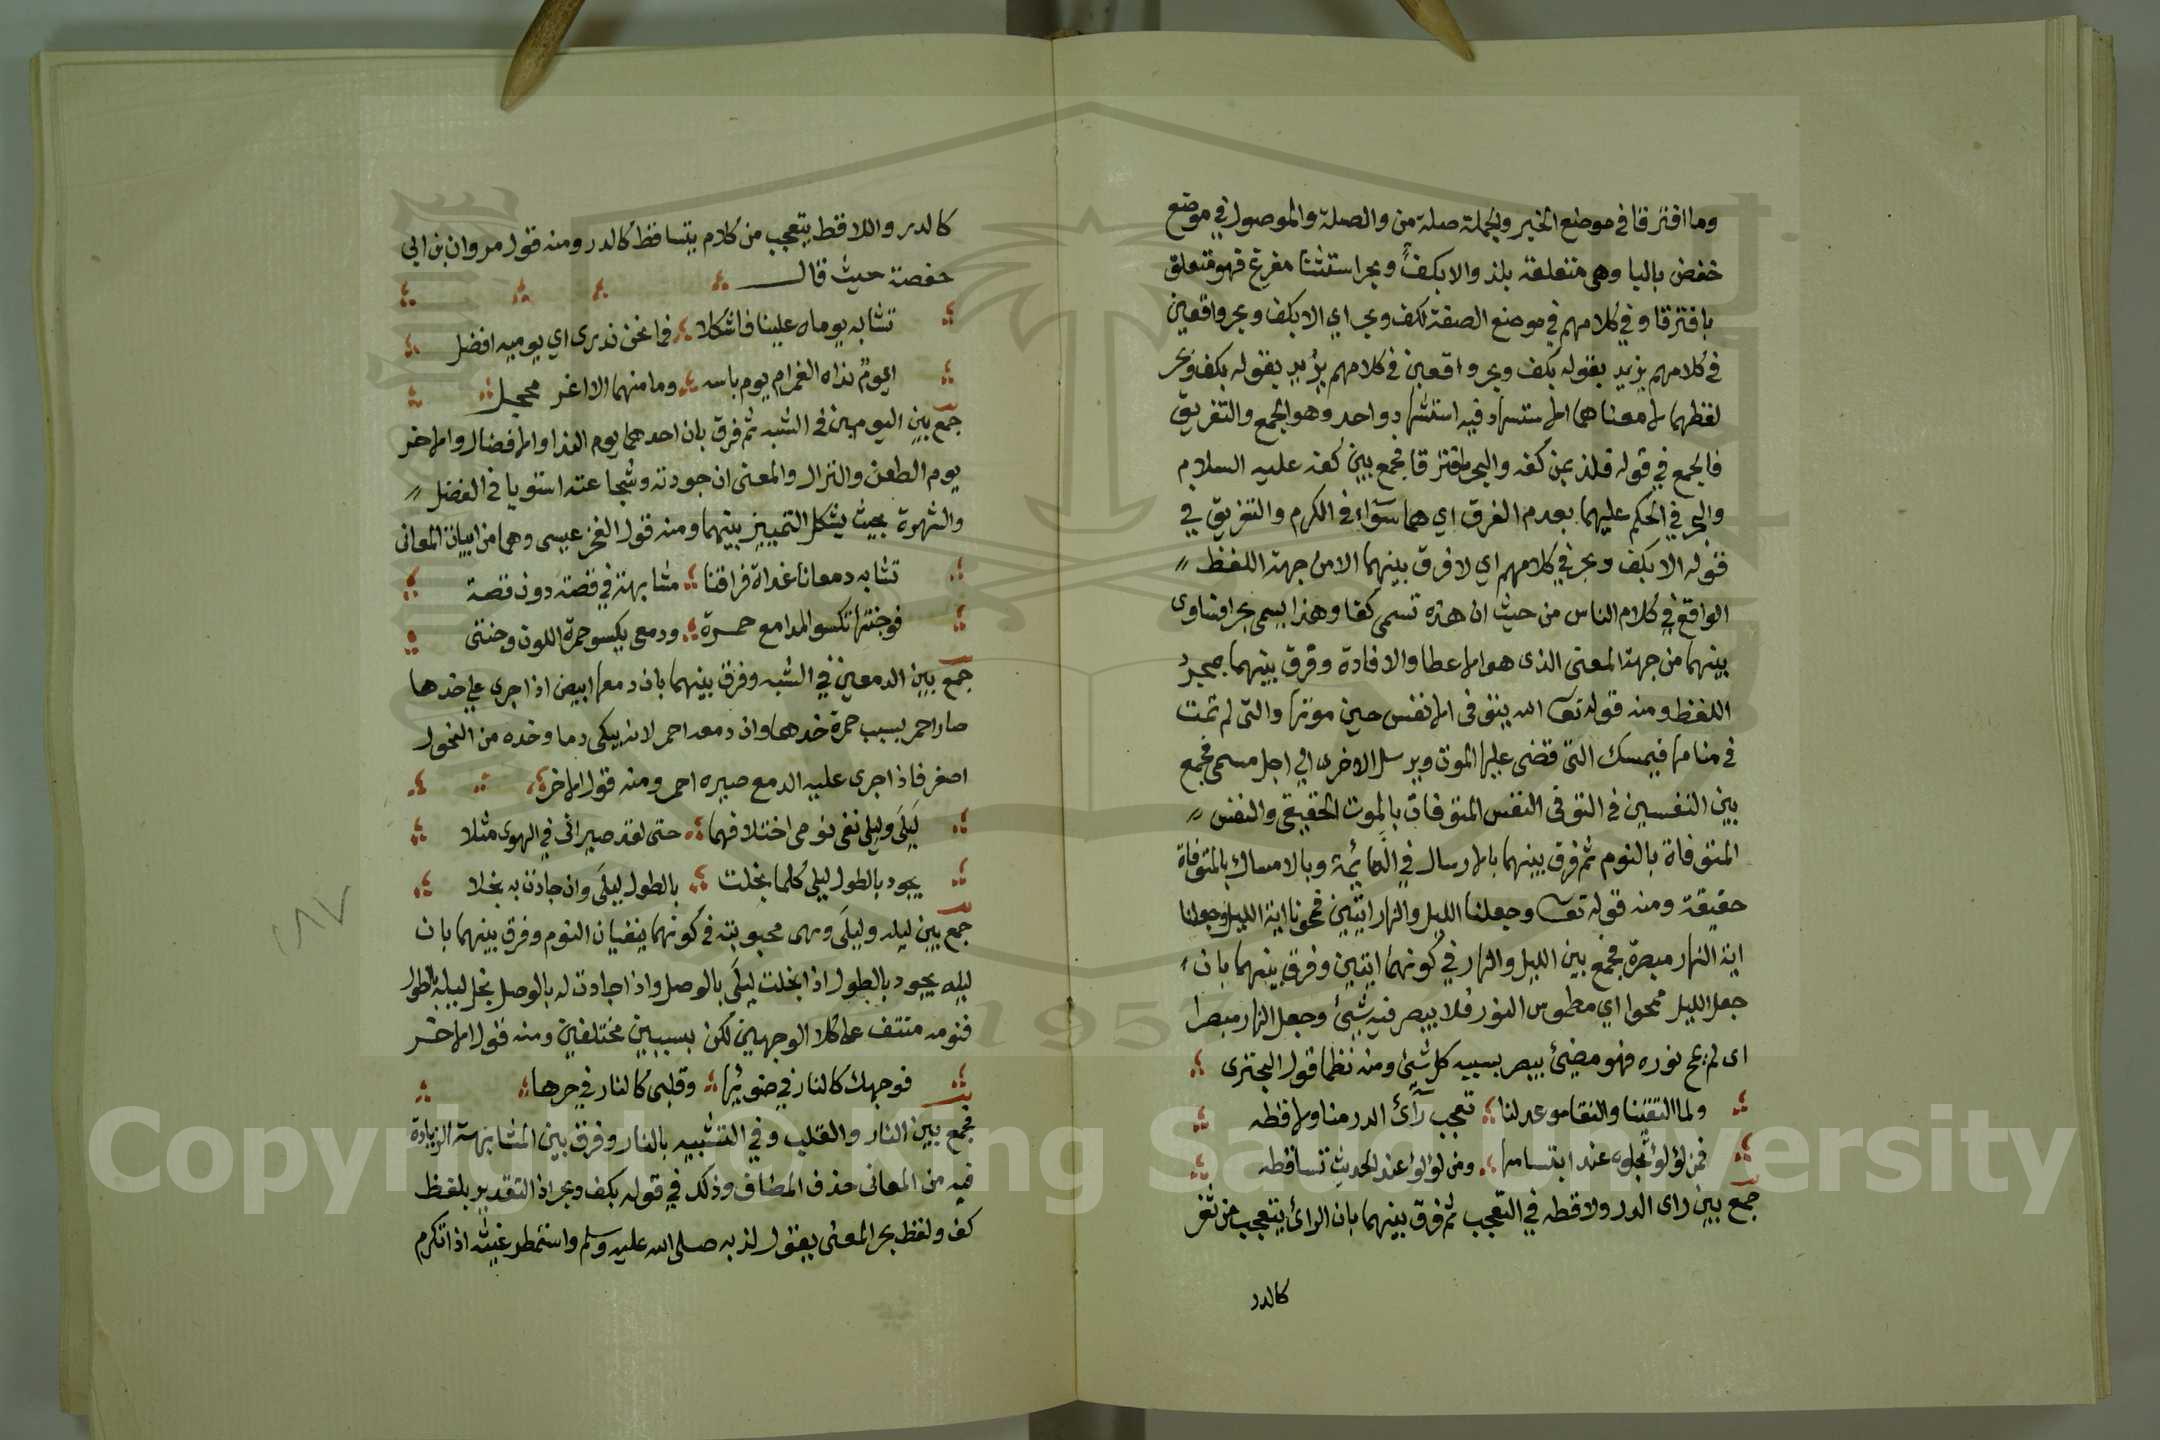 وما افترقا في موضع الخبر والجملة صلة من والصلة والموصول في موضع
خفض بالبا وهي متعلقة بلذ والا بكف وبحر استثنا مفرغ فهو متعلق
بافترقا وفي كلامهم في موضع الصفة لكف وبحر اي الا بكف وبحر واقعين
في كلامهم يريد بقوله بكف وبحر واقعين في كلامهم يريد بقوله بكف وبحر
لفظهما لا معناهما الاستشهاد فيه استشهاد واحد وهو الجمع والتفريق
فالجمع في قوله فلذ بمن كفه والبحر ما افترقا فجمع بين كفه عليه السلام
والبحر في الحكم عليهما بعدم الفرق اي هما سواء في الكرم والتفريق في
قوله الا بكف وبحر في كلامهم اي لا فرق بينهما الا من جهة اللفظ
الواقع في كلام الناس من حيث ان هذه تسمى كفا وهذا يسمى بحرا فتساوى
بينهما من جهة المعنى الذى هو الاعطا والافادة وفرق بينهما بمجرد
اللفظ ومنه قوله تعـ الله يتوفى الانفس حين موتها والتى لم تمت
في منامها فيمسك التى قضى عليها الموت ويرسل الاخرى الي اجل مسمى فجمع
بين النفسين في التوفي النفس المتوفاة بالموت الحقيقي والنفس
المتوفاة بالنوم ثم فرق بينهما بالارسال في النائمة وبالامساك بالمتوفاة
حقيقة ومنه قوله تعـ وجعلنا الليل والنهار ايتين فمحونا اية الليل وجعلنا
اية النهار مبصرة فجمع بين الليل والنهار في كونهما ايتين وفرق بينهما بان
جعل الليل ممحوا اي مطموس النور فلا يبصر فيه شيئ وجعل النهار مبصرا
اى لم يمح نوره فهو مضيئ يبصر بسببه كل شيئ ومنه نظما قول البحترى
ولما التقينا والنقا موعد لنا تعجب رآئ الدر منا ولاقطه
فمن لؤلؤ تجلوه عند ابتسامها ومن لؤلؤ عند الحديث تساقطه
جمع بين راى الدر ولاقطه في التعجب ثم فرق بينهما بان الرائ يتعجب من ثغر
كالدر
كالدر واللاقط يتعجب من كلام يتساقط كالدر ومنه قول مروان بن ابي
حفصة حيث قال
تشابه يوماه علينا فاشكلا فما نحن ندرى اي يوميه افضل
ايوم نداه الغمر ام يوم باسه وما منهما الا اغر محجل
جمع بين اليومين في الشبه ثم فرق بان احدهما يوم الندا والافضال والاخر
يوم الطعن والنزال والمعنى ان جودته وشجاعته استويا في الفضل
والشهرة بحيث يشكل التمييز بينهما ومنه قول الفخر عيسى وهما من ابيات المعانى
تشابه دمعانا غداة فراقنا مشابهة في قصة دون قصة
فوجنتها تكسو المدامع حمرة ودمعى يكسو حمرة اللون وجنتى
جمع بين الدمعين في الشبه وفرق بينهما بان دمعها ابيض اذا جرى على خدها
صار احمر بسبب حمرة خدها وان دمعه احمر لانه يبكى دما وخده من النحول
اصفر فاذا جرى عليه الدمع صيره احمر ومنه قول الاخر
ليلَى وليلِى نفى نومى اختلافهما حتى لقد صيرانى في الهوى مثلا
يجود بالطول ليلى كلما بخلت بالطول ليلَى وان جادت به بخلا
جمع بين ليله وليلَى وهى محبوبته في كونهما ينفيان النوم وفرق بينهما بان
ليله يجود بالطول اذا بخلت ليلَى بالوصل واذا جادت له بالوصل بخل ليله بالطول
فنومه منتف على كلا الوجهين لكن بسببين مختلفين ومنه قول الاخر
فوجهك كالنار في ضوئها وقلبى كالنار في حرها
فجمع بين النار والقلب وفي التشبيه بالنار وفرق بين المشابهة الزيادة
فيه من المعانى حذف المضاف وذلك في قوله بكف وبحر اذ التقدير بلفظ
كف ولفظ بحر المعنى يقول لذ به صلى الله عليه وسلم واستمطر غيثه اذا تكرم
Copyright © King Saud University
1957